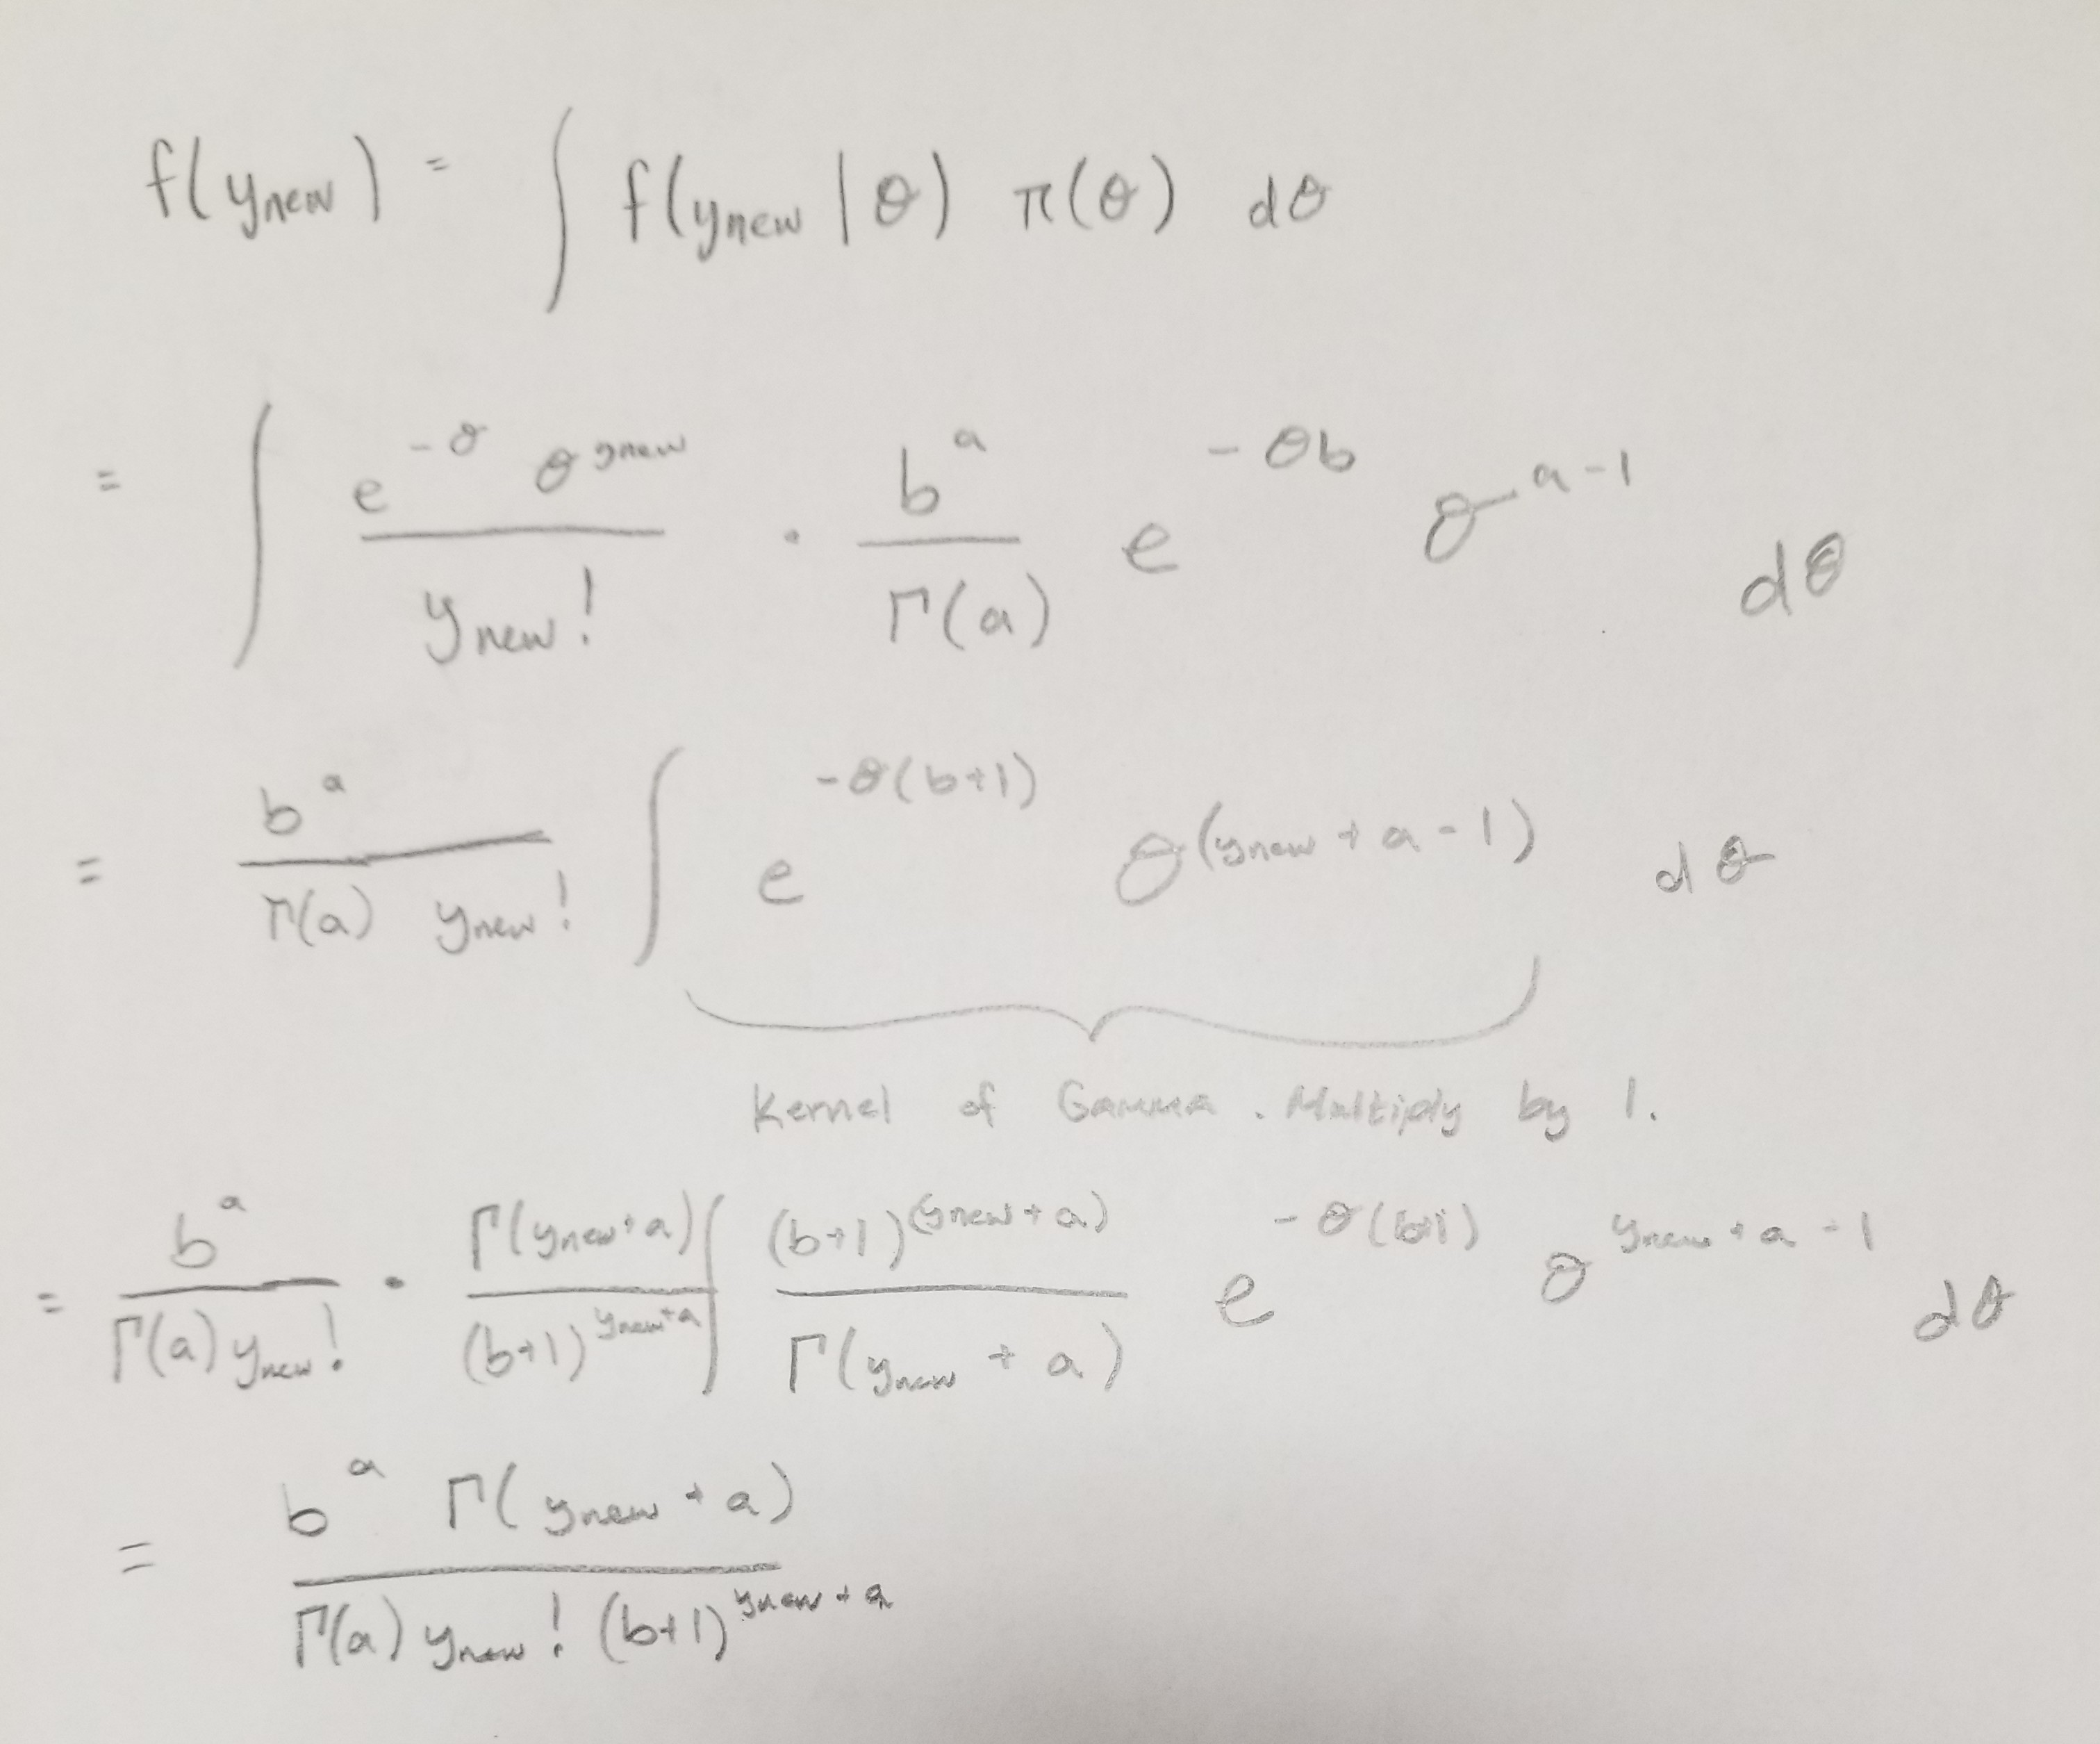 f(y_new) = ∫ f(y_new | θ) π(θ) dθ
= ∫ (e^{-θ} θ^{y_new} / y_new!) · (b^a / Γ(a)) e^{-θb} θ^{a-1} dθ
= (b^a / (Γ(a) y_new!)) ∫ e^{-θ(b+1)} θ^{(y_new + a - 1)} dθ
Kernel of Gamma. Multiply by 1.
= (b^a / (Γ(a) y_new!)) · (Γ(y_new + a) / (b+1)^{y_new + a}) ∫ ((b+1)^{(y_new + a)} / Γ(y_new + a)) e^{-θ(b+1)} θ^{y_new + a - 1} dθ
= (b^a Γ(y_new + a)) / (Γ(a) y_new! (b+1)^{y_new + a})